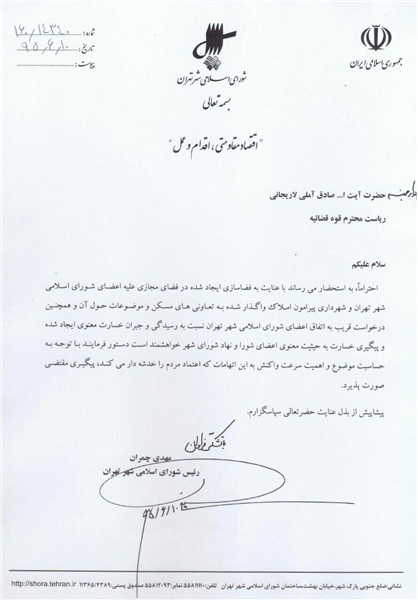 جمهوری اسلامی ایران
شورای اسلامی شهر تهران
شماره: ۱۶۰/۱۴۳۴۰
تاریخ: ۹۵/۶/۱۰
پیوست:
بسمه تعالی
"اقتصاد مقاومتی، اقدام و عمل"
حضرت آیت ا... صادق آملی لاریجانی
ریاست محترم قوه قضائیه
سلام علیکم
احتراماً، به استحضار می رساند با عنایت به فضاسازی ایجاد شده در فضای مجازی علیه اعضای شورای اسلامی
شهر تهران و شهرداری پیرامون املاک واگذار شده به تعاونی های مسکن و موضوعات حول آن و همچنین
درخواست قریب به اتفاق اعضای شورای اسلامی شهر تهران نسبت به رسیدگی و جبران خسارت معنوی ایجاد شده
و پیگیری خسارت به حیثیت معنوی اعضای شورا و نهاد شورای شهر خواهشمند است دستور فرمایند با توجه به
حساسیت موضوع و اهمیت سرعت واکنش به این اتهامات که اعتماد مردم را خدشه دار می کند، پیگیری مقتضی
صورت پذیرد.
پیشاپیش از بذل عنایت حضرتعالی سپاسگزارم.
با تشکر فراوان
مهدی چمران
رئیس شورای اسلامی شهر تهران
۹۵/۶/۱۰
نشانی: ضلع جنوبی پارک شهر، خیابان بهشت، ساختمان شورای اسلامی شهر تهران تلفن: ۵۵۸۱۱۱۱۰ نمابر: ۵۵۸۱۲۰۹۳ صندوق پستی: ۱۱۳۶۵/۴۳۸۹ http://shora.tehran.ir